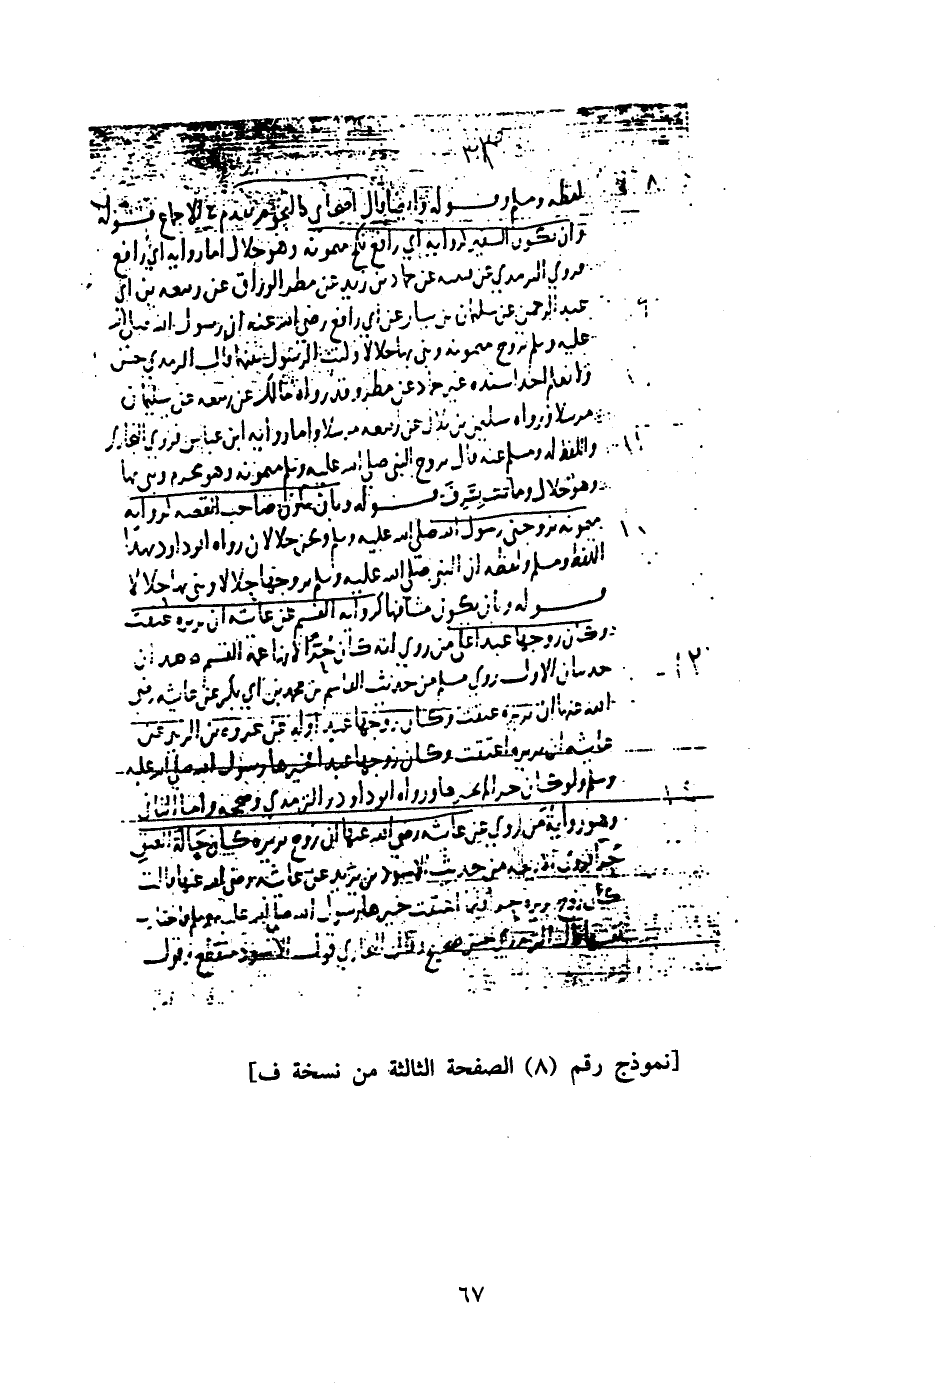 لفظه ومسلم قوله وايضا قال اقضاكم
قوله وان يكون السفير لرواية أبي رافع نكح ميمونة وهو حلال اما رواية أبي رافع
فروى الترمذي عن قتيبة عن حماد بن زيد عن مطر الوراق عن ربيعة بن أبي
عبد الرحمن عن سليمان بن يسار عن أبي رافع رضي الله عنه ان رسول الله صلى الله
عليه وسلم تزوج ميمونة وبنى بها حلالا وكنت الرسول بينهما قال الترمذي حسن
ولا نعلم احدا اسنده غير حماد عن مطر وقد رواه مالك عن ربيعة عن سليمان
مرسلا ورواه سليمن بن بلال عن ربيعة مرسلا واما رواية ابن عباس فروى البخاري
واللفظ له ومسلم عنه قال تزوج النبي صلى الله عليه وسلم ميمونة وهو محرم وبنى بها
وهو حلال وماتت بسرف قوله وبان يكون صاحب القصة لرواية
ميمونة تزوجني رسول الله صلى الله عليه وسلم ونحن حلالان رواه ابو داود بهذا
اللفظ ومسلم ولفظه ان النبي صلى الله عليه وسلم تزوجها حلالا وبنى بها حلالا
قوله وبان يكون مشافها كرواية القسم عن عائشة ان بريرة عتقت
وكان زوجها عبدا على من روى انه كان حرا لانها عمة القسم هذان
حديثان الاول روى مسلم من حديث القاسم بن محمد بن أبي بكر عن عائشة رضي
الله عنها ان بريرة عتقت وكان زوجها عبدا وله عن عروة بن الزبير عن
عائشة ان بريرة اعتقت وكان زوجها عبدا فخيرها رسول الله صلى الله عليه
وسلم ولو كان حرا لم يخيرها ورواه ابو داود والترمذي وصححه واما الثاني
وهو رواية من روى عن عائشة رضي الله عنها ان زوج بريرة كان حالة العتق
حرا من حديث الاسود بن يزيد عن عائشة رضي الله عنها قالت
كان زوج بريرة حرا فلما اعتقت خيرها رسول الله صلى الله عليه وسلم فاختارت
نفسها قال الترمذي حسن صحيح وقال البخاري قول الاسود منقطع وقول
[نموذج رقم (٨) الصفحة الثالثة من نسخة ف]
٦٧